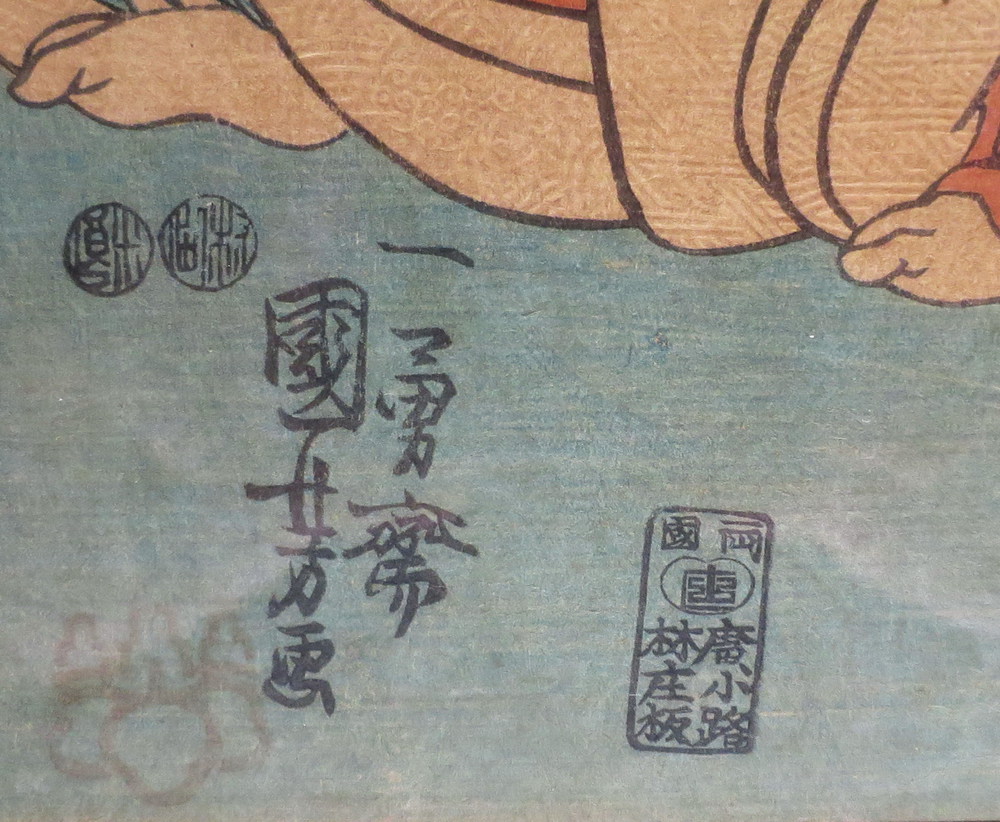 一勇齋
國芳画
両國
廣小路
林庄板